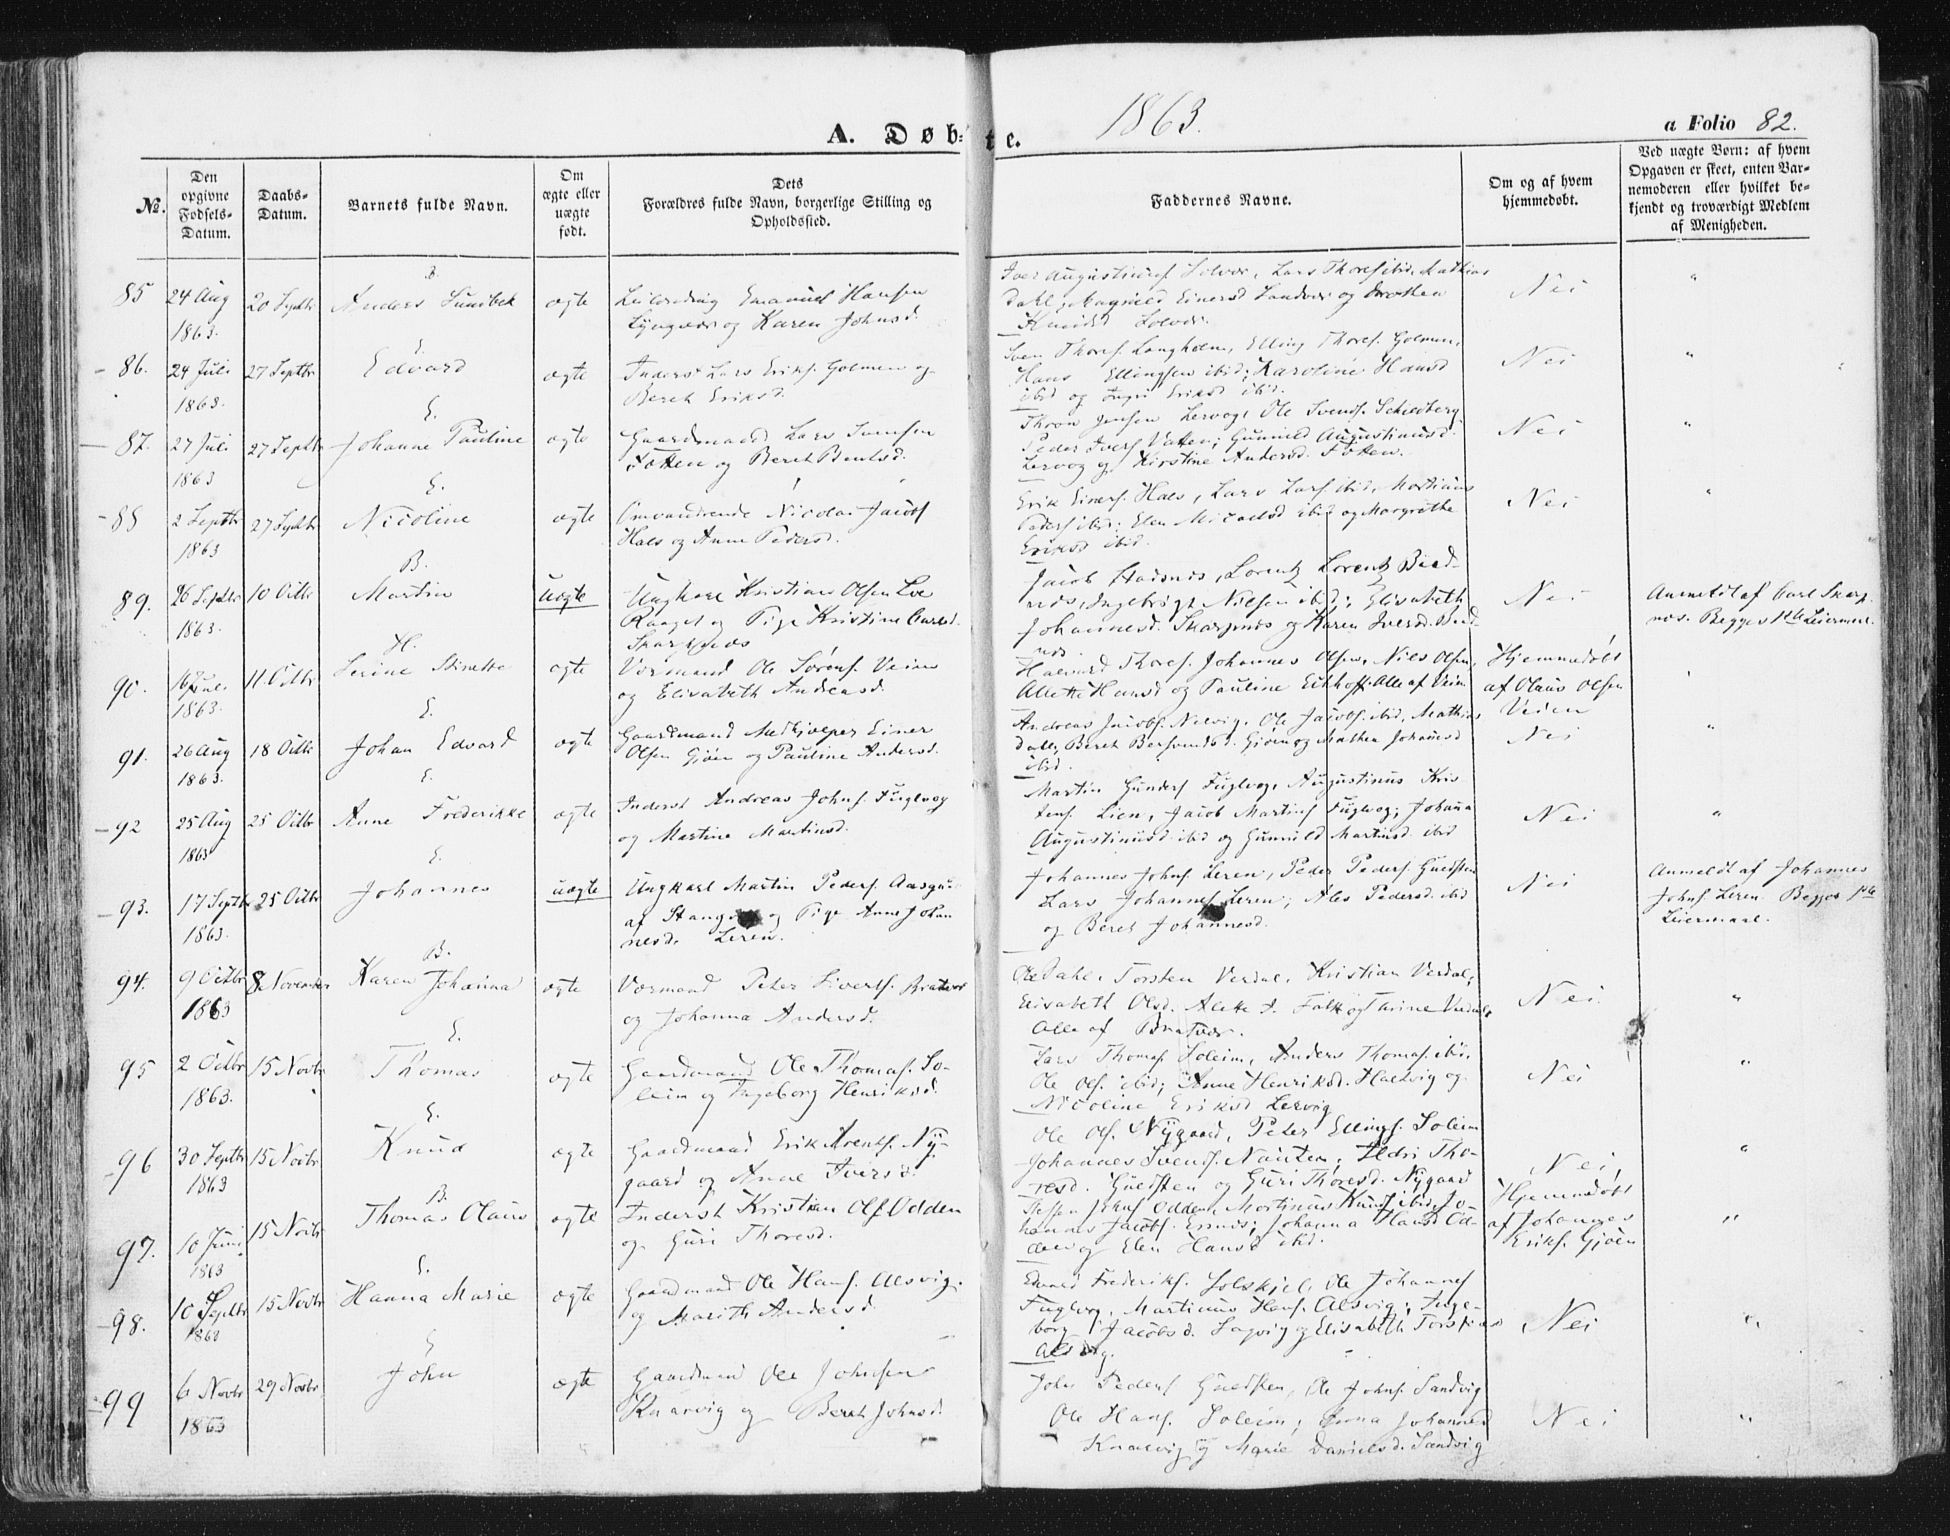 1863.
A. Døb- te.
a Folio 82.
№.
Den opgivne Fødsels-Datum.
Daabs-Datum.
Barnets fulde Navn.
Om ægte eller uægte født.
Dets Forældres fulde Navn, borgerlige Stilling og Opholdssted.
Faddernes Navne.
Om og af hvem hjemmedøbt.
Ved uægte Børn: af hvem Opgaven er skeet, enten Barnemoderen eller hvilket bekjendt og troværdigt Medlem af Menigheden.
B.
85 24 Aug 20 Septbr Anders Sundbek ægte Emanuel Hansen
1863. og Karen Johnsd.
Iver Augustinusf. Solvær, Lars Thoresf ibid, Mathias
Dahl, Einersd og
Knudsd Solvær.
Nei "
E
86. 24 Juli 27 Septbr Edvard ægte Inderst Lars Eriksf. Golmen og
1863. Bereth Eriksd.
Sven Thoresf. Langholm, Elling Thoresf. Golmen,
Hans Ellingsen ibid; Karoline Hansd
ibid og Ingri Eriksd ibid.
Nei "
E.
87. 27 Juli 27 Septbr Johanne Pauline ægte Gaardmand Lars Svensen
1863 Fætten og Bereth Bentsd.
Thron Jensen Lervog, Ole Svendsf.
Peder Iversf Vatten; Gunild Augustinusd.
Lervog og Kirstine Andersd. Fætten.
Nei "
E.
88 2 Septbr 27 Septbr Nicoline ægte Omvandrende Nicolai Jacobsf
1863 Hals og Anne Pedersd.
Erik Einersf. Hals, Lars Larsf. ibid, Mortinus
Pedersf ibid; Elen ibid og Margrethe
Eriksd ibid.
Nei "
B.
89. 26 Septbr 10 Octbr Martin uægte Ungkarl Kristian Olsen Loe
1863. og Pige Kristine Carlsd.
Skarpnæs
Jacob Hadsnæs, Lorentz Lorentz Bred-
næs, Ingebrigt Nilsen ibid; Elisabeth
Johannesd. Skarpnæs og Karen Iversd. Bred
næs.
Nei
Anmeldt af Carl Skarp-
næs. Begges 1ste Leiermaal.
H.
90. 16 Juli 11. Octbr Serine Stinette ægte Vormand Ole Sørensf. Veien
1863. og Elisabeth Andreasd.
Halvard Thoresf. Johannes Olsen, Nils Olsen,
Alette Hansd og Pauline Eckhoff. Alle af Veien
Hjemmedøbt
af Olaus Olsen
Veien
E.
91. 26 Aug 18 Octbr Johan Edvard ægte Gaardmand Medhjælper Einer
1863. Olsen Gjøen og Pauline Andersd.
Andreas Jacobsf. Nelvig, Ole Jacobsf. ibid, Mathias
Dall, Bereth Gjøen og Mathea Johansd
ibid.
Nei "
E.
92 25 Aug 25 Octbr Anne Frederikke ægte Inderst Andreas Johnsf. Fuglvog
1863 og Martine Martinsd.
Martin Gundersf Fuglvog, Augustinus Kris
tensf. Lien, Jacob Martinsf Fuglvog; Johana
Augustinusd ibid og Gunild Martinsd ibid
Nei "
E.
93. 17 Septbr 25 Octbr Johannes uægte Ungkarl Martin Pedersf. Aasgaa
1863. af Stangv og Pige Anne Johan
nesd. Leren.
Johannes Johnsf Leren, Peder Pedersf. Gredsten
Lars Johannesf Leren; Ales Pedersd. ibid
og Bereth Johannesd.
Nei
Anmeldt af Johannes
Johnsf. Leren. Begges 1ste
Leiermaal.
B.
94. 9 Octbr 8 November Karen Johanna ægte Vormand Peter Sivertsf. Bratvær
1863 og Johanna Andersd.
Ole Dahl, Torsten Verdal, Kristian Verdal;
Elisabeth Olsd. Falk og Verdal.
Alle af Bratvær.
Nei "
E.
95 2 Octbr 15 Novbr Thomas ægte Gaardmand Ole Thomasf. So-
1863. leim og Ingeborg Henriksd.
Lars Thomasf Soleim, Anders Thomasf. ibid,
Ole Olsf. ibid; Anne Henriksd. Haltvig og
Nicoline Eriksd Lervig
Nei "
E.
96 30 Septbr 15 Novbr Knud ægte Gaardmand Erik Arentsf. Ny-
1863 gaard og Anne Iversd.
Ole Olsf. Nygaard, Peter Ellingsf. Soleim
Johannes Svendsf. ; Ildri Tho-
resd. Gredsten og Guri Thoresd. Nygaard
Nei, "
B.
97. 10 Juni 15 Novbr Thomas Olaus ægte Inderst Kristian Olsf Odden
1863 og Guri Thoresd.
Steffen Johnsf Odden, Mortinus Knudsf ibid, Jo-
hannes Jacobsf. ; Johanna Hansd Od-
den og Elen Hansd ibid.
Hjemmedøbt
af Johannes
Eriksf. Gjøen "
E.
98. 10 Septbr 15 Novbr Hanna Marie ægte Gaardmand Ole Hansf. Alsvig.
1863 og Marith Andersd
Edvard Frederiksf. Solskjel, Ole Johannesf
Fuglvog, Martinus Hansf. Alsvig; Inge-
borg Jacobsd. Lagvig og Elisabeth
Alsvig.
Nei "
E
99 6 Novbr 29 Novbr John ægte Gaardmand Ole Johnsen
1863 Knarvig og Bereth Johnsd.
John Pedersf Gredsten, Ole Johnsf. Sandvig
Ole Hansf. Soleim; Johannesd
Knarvig og Marie Danielsd. Sandvig
Nei "